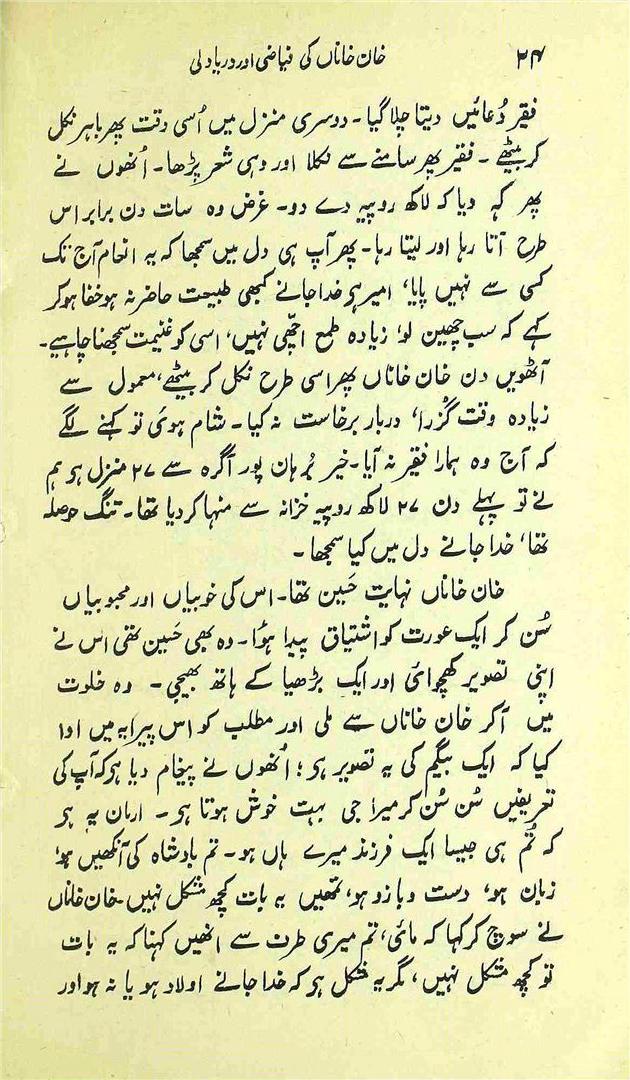 ۲۴ خان خاناں کی فیاضی اور دریا دلی
فقیر دُعائیں دیتا چلا گیا۔ دوسری منزل میں اُسی وقت پھر باہر نکل
کر بیٹھے۔ فقیر پھر سامنے سے نکلا اور وہی شعر پڑھا۔ اُنھوں نے
پھر کہہ دیا کہ لاکھ روپیہ دے دو۔ غرض وہ سات دن برابر اس
طرح آتا رہا اور لیتا رہا۔ پھر آپ ہی دل میں سمجھا کہ یہ انعام آج تک
کسی سے نہیں پایا، امیر ہی خدا جانے کبھی طبیعت حاضر نہ ہو خفا ہوکر
کہے کہ سب چھین لو، زیادہ طمع اچھی نہیں، اسی کو غنیمت سمجھنا چاہیے۔
آٹھویں دن خان خاناں پھر اسی طرح نکل کر بیٹھے، معمول سے
زیادہ وقت گُزرا، دربار برخاست نہ کیا۔ شام ہوئی تو کہنے لگے
کہ آج وہ ہمارا فقیر نہ آیا۔ خیر بُرہان پور آگرہ سے ۲۷ منزل ہو ہم
نے تو پہلے دن ۲۷ لاکھ روپیہ خزانہ سے منہا کر دیا تھا۔ تنگ حوصلہ
تھا، خدا جانے دل میں کیا سمجھا۔
خان خاناں نہایت حَسین تھا۔ اس کی خوبیاں اور محبوبیاں
سُن کر ایک عورت کو اشتیاق پیدا ہؤا۔ وہ بھی حَسین تھی اس نے
اپنی تصویر کھچوائی اور ایک بڑھیا کے ہاتھ بھیجی۔ وہ خلوت
میں آکر خان خاناں سے ملی اور مطلب کو اس پیرایہ میں ادا
کیا کہ ایک بیگم کی یہ تصویر ہی؛ اُنھوں نے پیغام دیا ہو کہ آپ کی
تعریفیں سُن سُن کر میرا جی بہت خوش ہوتا ہی۔ ارمان یہ ہی
کہ تُم ہی جیسا ایک فرزند میرے ہاں ہو۔ تم بادشاہ کی آنکھیں ہو،
زبان ہو، دست و بازو ہو، تمھیں یہ بات کچھ مشکل نہیں۔ خان خاناں
نے سوچ کر کہا کہ مائی، تم میری طرف سے انھیں کہنا کہ یہ بات
تو کچھ مشکل نہیں، مگر یہ مشکل ہی کہ خدا جانے اولاد ہو یا نہ ہو اور